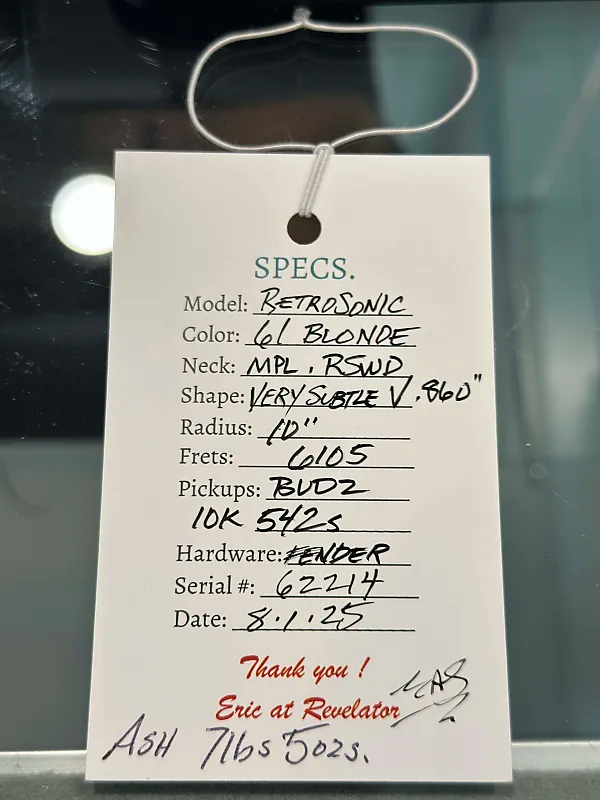 SPECS.
Model: RETROSONIC
Color: 61 BLONDE
Neck: MPL. RSWD
Shape: VERY SUBTLE V .860"
Radius: 10"
Frets: 6105
Pickups: BUDZ
10K 542s
Hardware: FENDER
Serial #: 62214
Date: 8.1.25
Thank you !
Eric at Revelator
ASH 7lbs 5ozs.